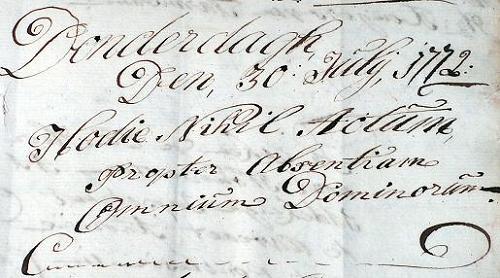 Donderdagh,
Den, 30: July, 1772:
Hodie Nihil Actům,
propter Absentiam
Omniům Dominorům